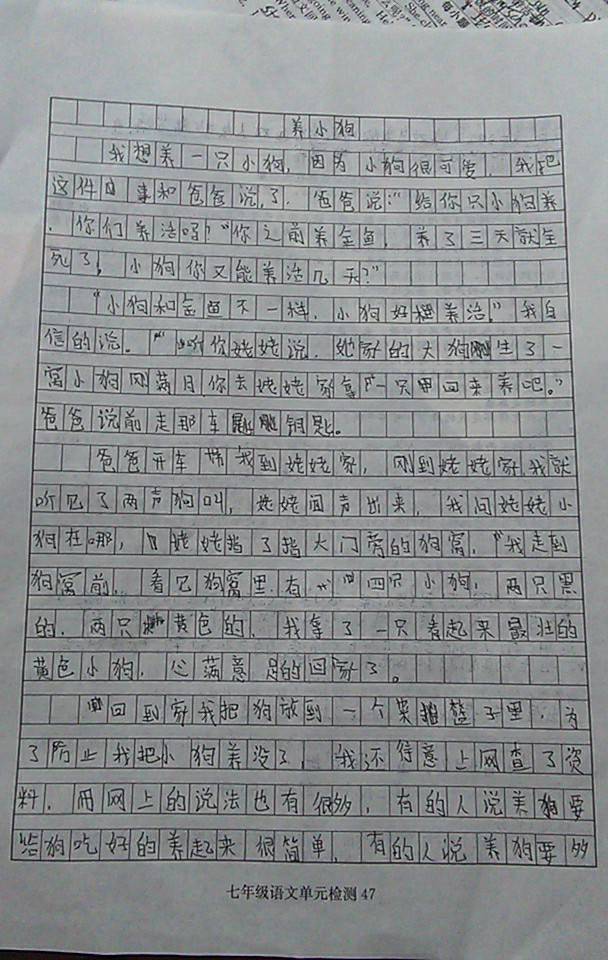 养小狗
我想养一只小狗，因为小狗很可爱，我把
这件事和爸爸说了，爸爸说：“给你只小狗养
，你们养活吗？“你之前养金鱼，养了三天就全
死了，小狗你又能养活几天？”
“小狗和金鱼不一样，小狗好养活。”我自
信的说。“听你姥姥说，她家的大狗刚生了一
窝小狗刚满月，你去姥姥家拿一只回来养吧。”
爸爸说前走那车钥匙。
爸爸开车带我到姥姥家，刚到姥姥家，我就
听见了两声狗叫，姥姥闻声出来，我问姥姥小
狗在哪，姥姥指了指大门旁的狗窝，“我走到
狗窝前，看见狗窝里有四只小狗，两只黑
的，两只黄色的，我拿了一只看起来最壮的
黄色小狗，心满意足的回家了。
回到家我把狗放到一个子里，为
了防止我把小狗养没了，我还得意上网查了资
料，网上的说法也有很多，有的人说养狗要
给狗吃好的养起来很简单，有的人说养狗要多
七年级语文单元检测 47